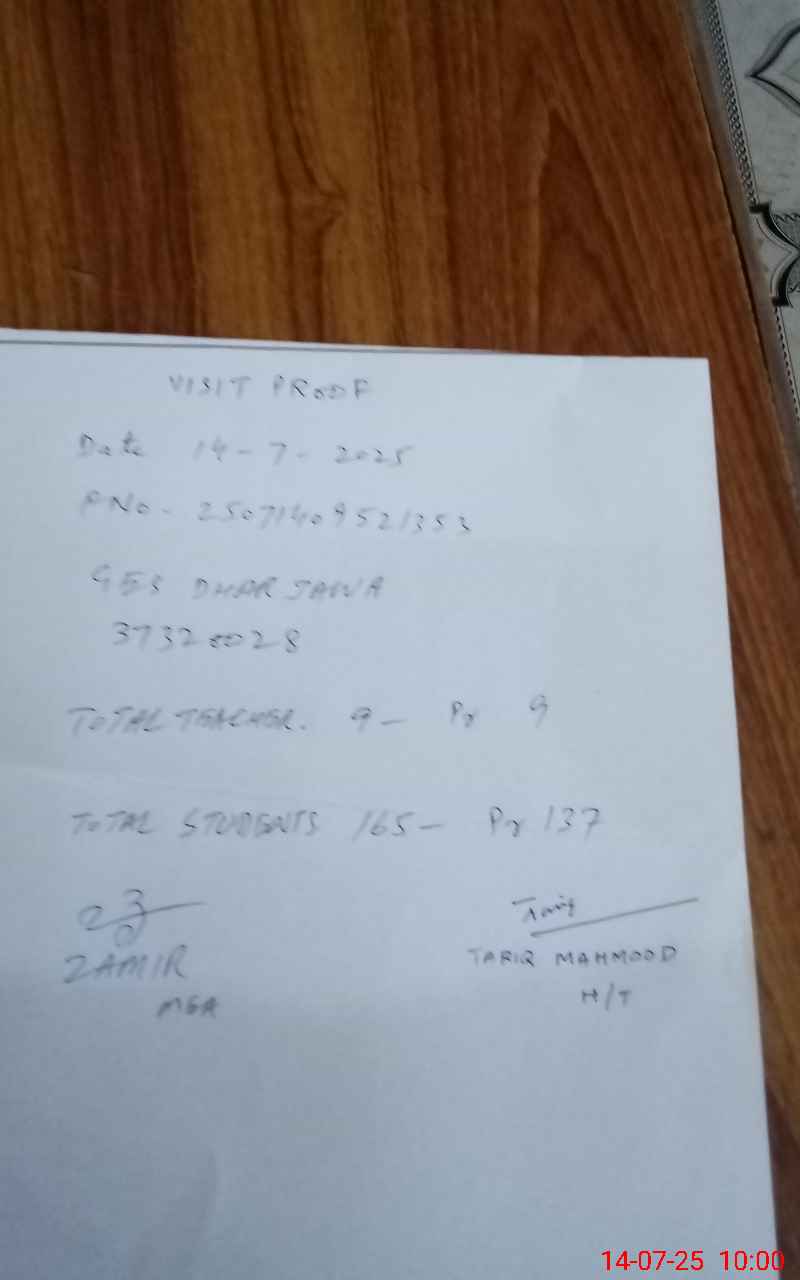 VISIT PROOF
Date 14-7-2025
PNo- 25071409521353
GES DHARJAWA
37320028
TOTAL TEACHER. 9- Pr 9
TOTAL STUDENTS 165- Pr 137
Tariq
ZAMIR
TARIQ MAHMOOD
MEA
H/T
14-07-25 10:00